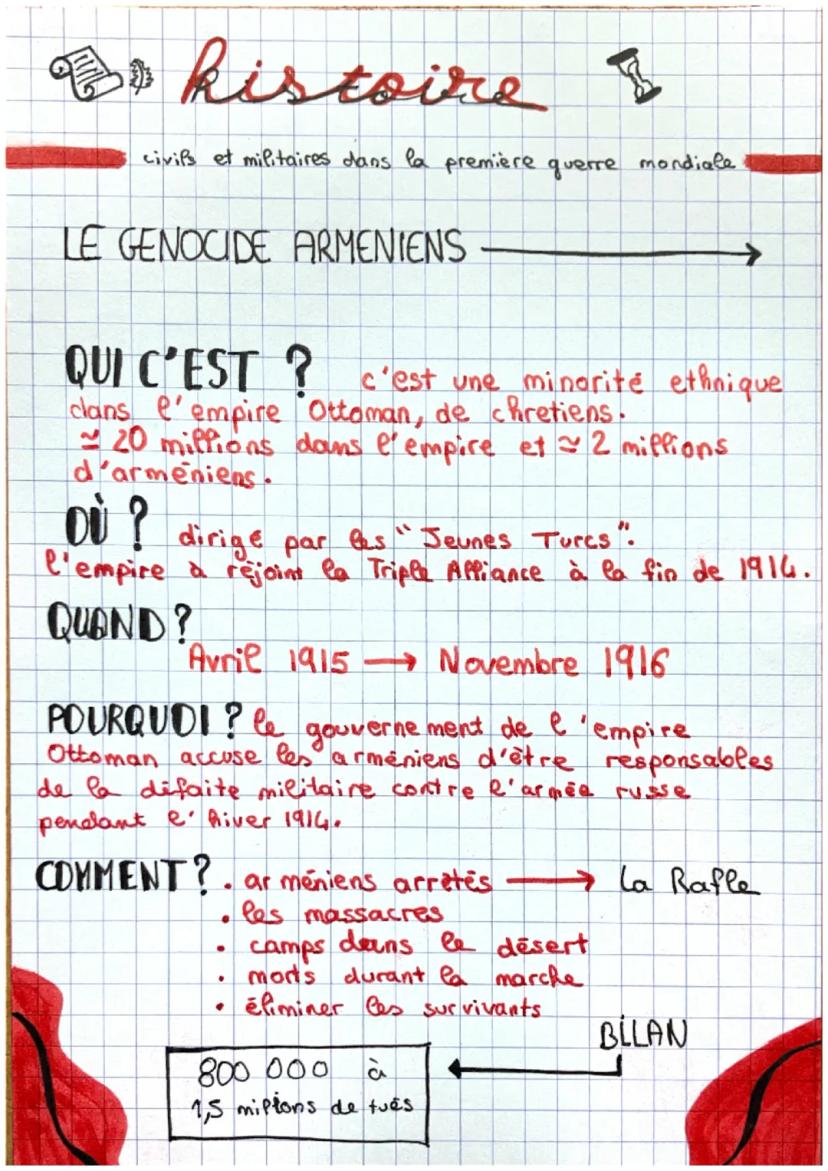 histoire
civils et militaires dans la première guerre mondiale
LE GENOCIDE ARMENIENS
QUI C'EST ? c'est une minorité ethnique
dans l'empire Ottoman, de chretiens.
≃ 20 millions dans l'empire et ≃ 2 millions
d'arméniens.
OÙ ? dirigé par les "Jeunes Turcs".
l'empire a rejoint la Triple Alliance à la fin de 1914.
QUAND ?
Avril 1915 → Novembre 1916
POURQUOI ? le gouvernement de l'empire
Ottoman accuse les arméniens d'être responsables
de la défaite militaire contre l'armée russe
pendant l'hiver 1914.
COMMENT ? • arméniens arrêtés → La Rafle
• les massacres
• camps dans le désert
• morts durant la marche
• éliminer les survivants
BILAN
800 000 à
1,5 millions de tués